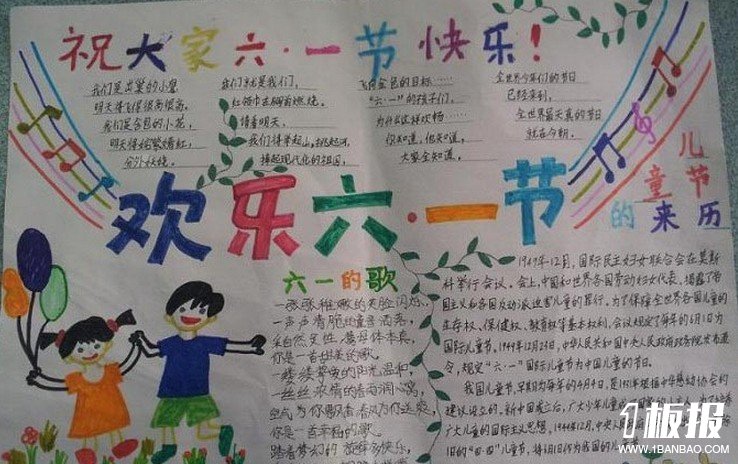 祝大家六·一节快乐!
我们是出巢的小鹰
明天得飞得很高很高,
我们是含苞的小花,
明天得姹紫嫣红,
分外妖娆。
我们就是我们,
红领巾在胸前燃烧。
待看明天,
我们得举起山,挑起河,
捧起现代化的祖国,
飞向金色的目标……
“六一”的孩子们,
为什么这样欢畅
你知道,他知道,
大家全知道,
全世界少年们的节日
已经来到,
全世界最天真的节日
就在今朝。
欢乐六·一节
儿童节的来历
六一的歌
一张张稚嫩的笑脸闪烁,
一声声清脆的童音洒落,
你是一首
一缕缕挚爱的阳光温和,
一丝丝浓情的春雨润心窝,
你是一首幸福的歌
踏着梦幻的
1949年12月,国际民主妇女联合会在莫斯
科举行会议。会上,中国和世界各国劳动妇女代表,揭露了各
国主义和各国反动派迫害儿童的罪行。为了保障全世界各国儿童的
生存权、保健权、教育权等基本权利,会议规定了每年的6月1日为
国际儿童节。1949年12月23日,中华人民共和国中央人民政府政务院发布通
令,规定“六·一”国际儿童节为中国儿童的节日。
我国儿童节,早期为每年的4月4日,是1931年根据中华慈幼协会的
建议设立的。新中国成立后,广大少年儿童
广大儿童的国际主义思想,1949年12月,中央
旧的“四·四”儿童节,将6月1日作为我国的儿童
1板报
WWW.1BANBAO.COM